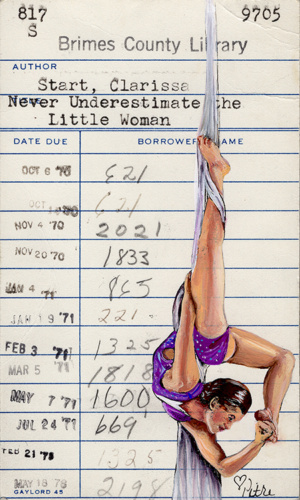 817 9705
S
Brimes County Library
AUTHOR
Start, Clarissa
Never Underestimate the
Little Woman
DATE DUE BORROWER NAME
OCT 6 '70 621
OCT 621
NOV 4 '70 2021
NOV 20 70 1833
JAN 4 '71 865
JAN 19 '71 221
FEB 3 '71 1325
MAR 5 '71 1818
MAY 7 '71 1600
JUL 24 '71 669
FEB 21 '78 1325
MAY 18 78 2198
GAYLORD 45